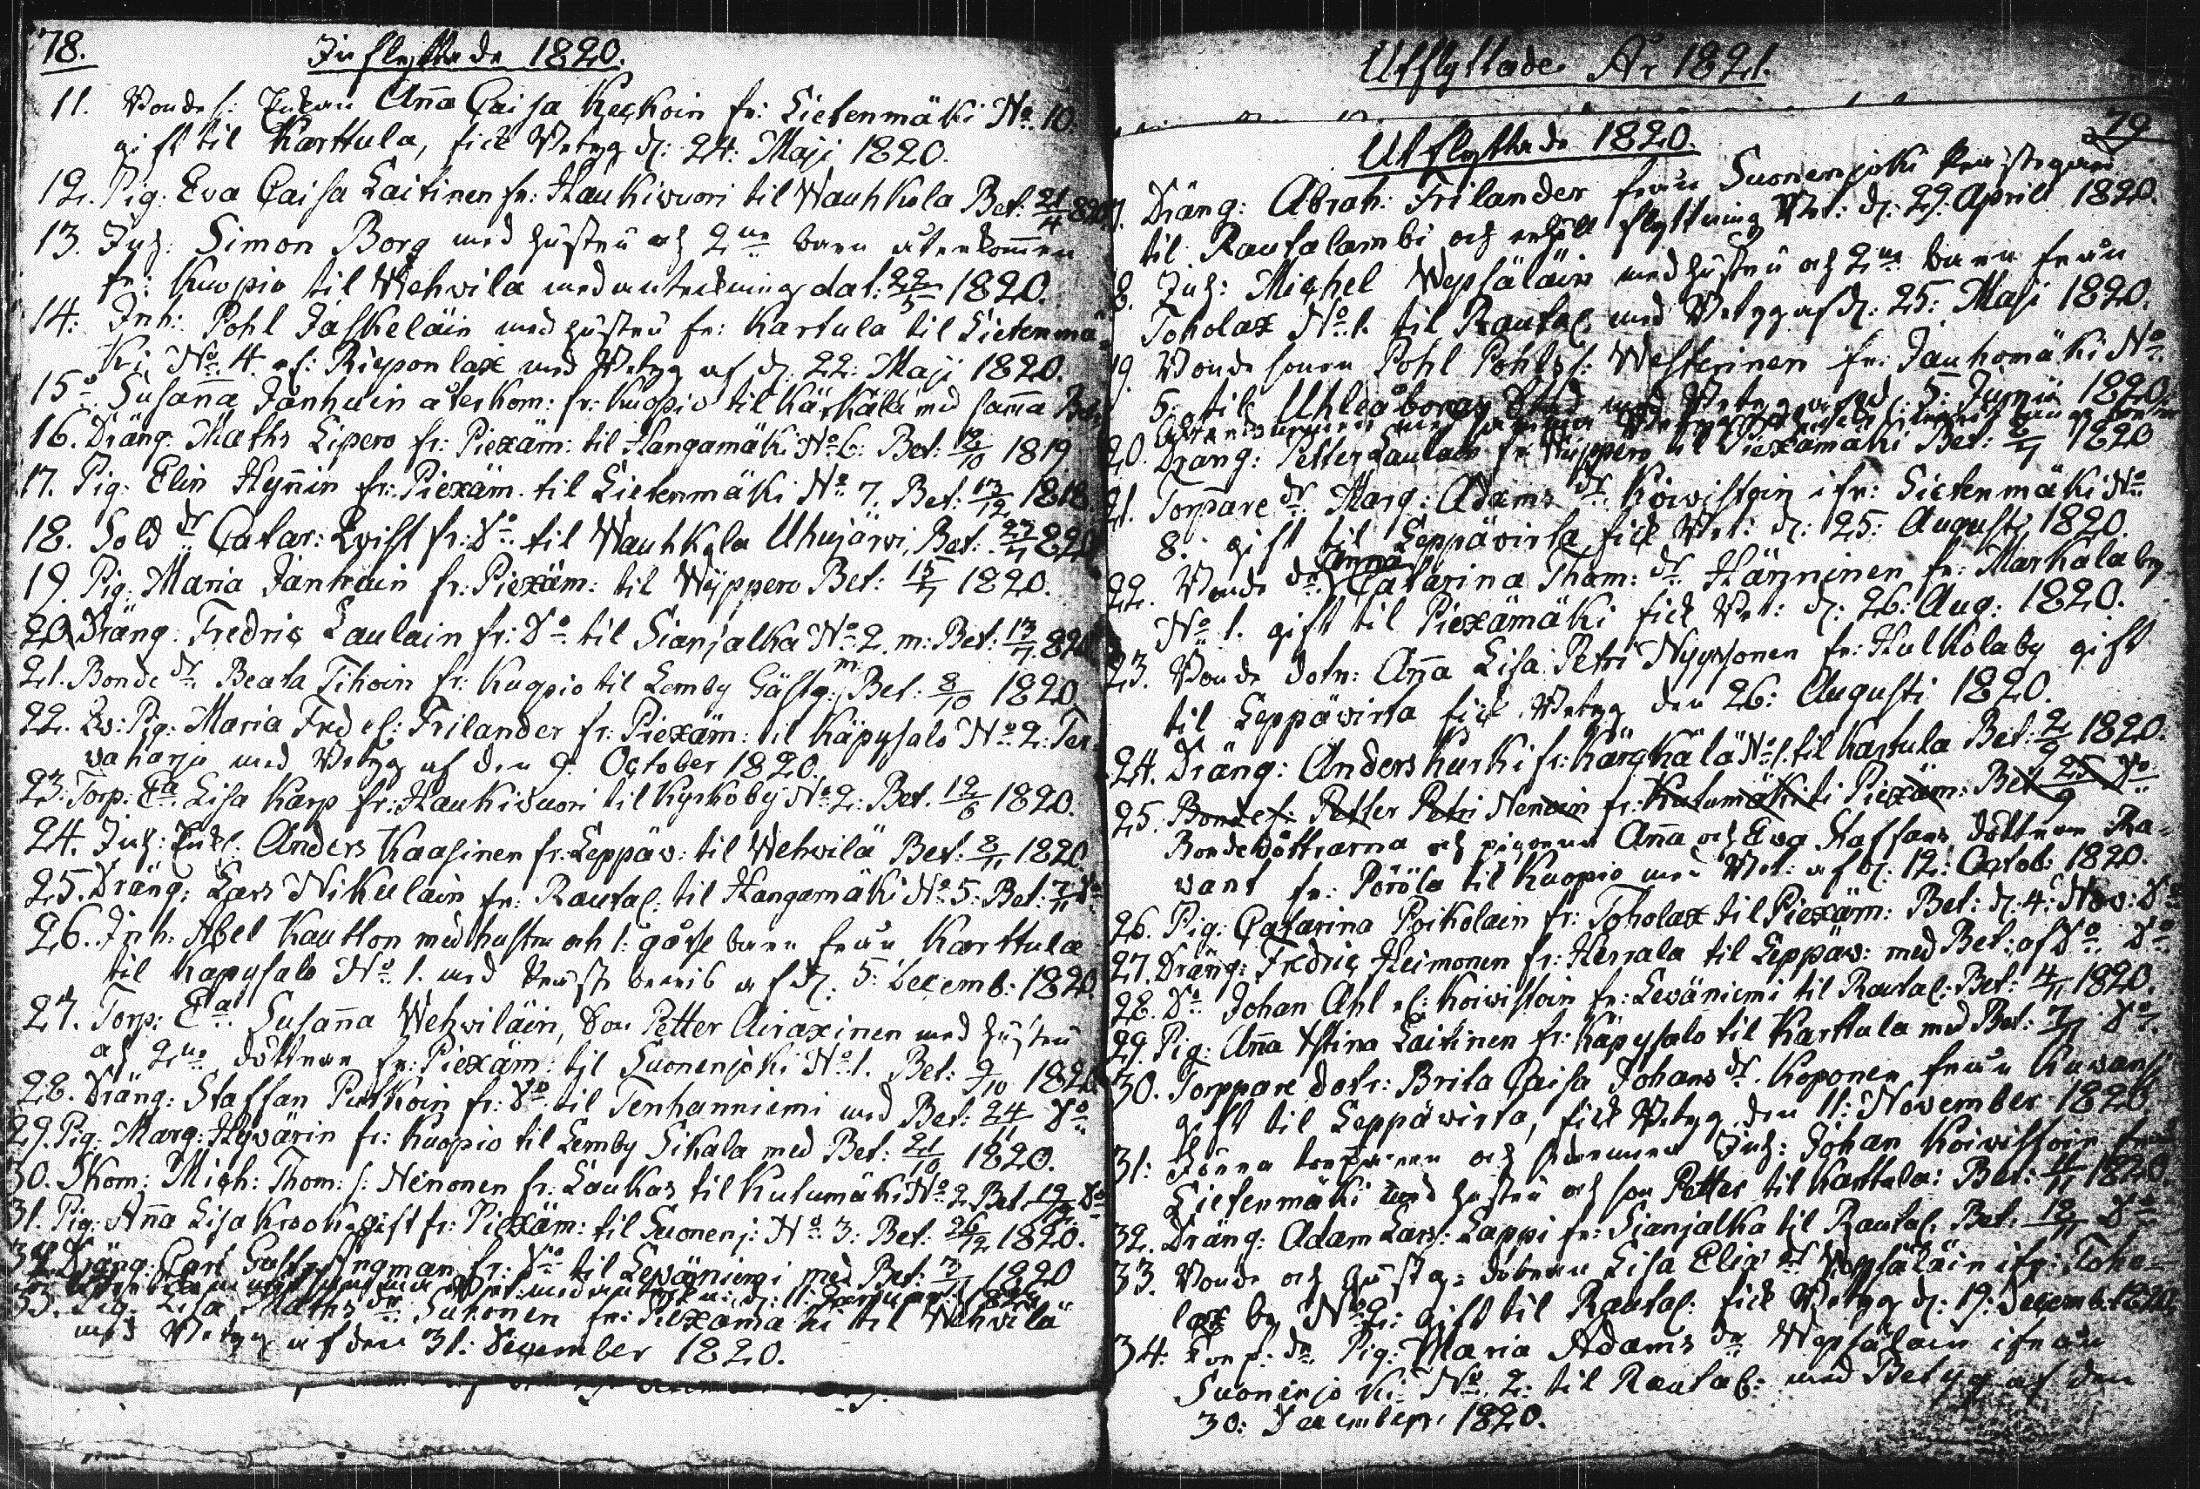 78.
Inflyttade 1820.
11. Bondes: Enkan Anna Caisa Keckoin fr: Lietenmäki No 10.
gift til Karttula, fick Betyg d: 24: Maji 1820.
12. Pig: Eva Caisa Laitinen fr: Haukivuori til Wauhkola Bet: 21/4 820
13. Inh: Simon Borg med hustru och 2ne barn återkommen
fr: Kuopio til Wehvila med anteckning dat: 22/5 1820.
14. Inh: Pohl Jäskeläin med hustru fr: Kartula til Lietenmä-
ki No 4. el: Rieponlax med Betyg af d: 22: Maji 1820.
15. Susanna Janhuin återkom: fr: Kuopio til Kärkälä med samma
16. Dräng: Maths Lipero fr: Piexäm: til Hangamäki No 6: Bet: 12/10 1819
17. Pig: Elin Hynnin fr: Piexäm. til Lietenmäki No 7. Bet: 13/12 1818
18. Sold dr Catar: Qvist fr: Do til Wauhkola Uhujärvi, Bet: 820
19. Pig: Maria Janhuin fr: Piexäm: til Wyppero Bet: 1820.
20. Dräng: Fredric Laulain fr: Do til Sianjalka No 2. m: Bet: 820
21. Bonde dr Beata Tihoin fr: Kuopio til Lemby Gästg: m Bet: 8/10 1820
22. Pig: Maria Fred Frilander fr: Piexäm: til Käpysalo No 2: Ter-
vaharju med Betyg af den 9. October 1820.
23. Torp: Ea. Lisa Karp fr: Haukivuori til Kyrkoby No 2: Bet. 12/6 1820.
24. Inh: Anders Kaasinen fr: Leppäv: til Wehvilä Bet: 8/11 1820
25. Dräng: Lars Nikulain fr: Rautal: til Hangamäki No 5: Bet: 7/11 Do
26. Inh. Abel Kautton med hustru och 1: gosse barn från Karttula
til Käpysalo No 1. med Prest bevis af d: 5: Decemb: 1820.
27. Torp: Ea. Susanna Wehviläin, Son Petter Airaxinen med hustru
och 2ne döttrar fr: Piexäm: til Suonenjoki No 1. Bet: 9/10 1820
28. Dräng: Staffan Putkoin fr: Do til Tenhanniemi med Bet: 24/11 Do
29. Pig: Marg: Hyvärin fr: Kuopio til Lemby Sikala med Bet: 21/10 1820.
30. Mich: Thom: s: Nenonen fr: Laukas til Kutumäki No 2 Bet. Do
31. Pig: Anna Lisa Krook gift fr: Piexäm: til Suonenj: No 3: Bet: 26/12 1820.
32. Dräng: Carl Ingman fr: Do til Leväniemi med Bet: 1820
33. Pig: Lisa Maths dr Suhonen fr: Piexämäki til Wehvilä
med Betyg af den 31: December 1820.
Utflyttade År 1821.
79
Utflyttade 1820.
Dräng: Abrah: Frilander från Suonenjoki Prästegård
til Rautalambi och erhöll flyttning Bet: d: 29: April 1820.
18. Inh: Michel Wepsäläin med hustru och 2ne barn från
Toholax No 1. til Rautal: med Betyg af d: 25: Maji 1820.
19. Bonde sonen Pohl Pohls s: Westerinen fr: Jauhomäki No
5. til Uhleåborgs Stad med Betyg d: 5: Junii 1820.
20. Dräng: Petter Laulain fr: Wyppero til Piexämäki Bet: 1820
21. Torpare dr Marg: Adams dr Koivistoin ifr: Lietenmäki No
8. gift til Leppävirta fick Bet: d: 25: Augusti 1820.
22. Bonde dr Anna Catarina Thom: dr Hänninen fr: Markala by
No 1. gift til Piexämäki fick Bet: d: 26: Aug: 1820.
23. Bonde dotr: Anna Lisa Petri Nyyssonen fr: Hulkola by gift
til Leppävirta fick Betyg den 26: Augusti 1820.
24. Dräng: Anders Kurki fr: Kärkälä No 1. til Kartula Bet: 2/9 1820.
25. Bondes: Petter Petri Nenoin fr: Kutumäki ti Piexäm: Bet 25/9 Do
Bondedöttrarna och pigorna Anna och Eva Staffans döttrar Ra-
vant fr: Pörölä til Kuopio med Bet: af d: 12: Octob 1820.
26. Pig: Catarina Poikolain fr: Toholax til Piexäm: Bet: d: 4: Nov: Do
27. Dräng: Fredric Heimonen fr: Herrala til Leppäv: med Bet: af Do. Do
28. Do Johan Ahl el: Koivistoin fr: Leväniemi til Rautal: Bet: 4/11 1820.
29. Pig: Anna Stina Laitinen fr: Käpysalo til Karttula med Bet: 7/11 Do.
30. Torppare dotr: Brita Caisa Johans dr. Koponen från Kuvansi
gift til Leppävirta, fick Betyg den 11: November 1820.
31: torparen och Inh: Johan Koivistoin från
Lietenmäki med hustru och son Petter til Karttula: Bet: 11/11 1820
32. Dräng: Adam Lars: Lappi fr: Sianjalka til Rautal. Bet: 12/11 Do
33. Bonde och Lisa Elin dr Wepsäläin ifr: Toho-
lax by No 2: gift til Rautal: fick Betyg d: 19: Decemb: 1820.
34. dr Pig: Maria Adams dr Wepsäläin ifrån
Suonenjoki No 2: til Rautal: med Betyg af den
30: December 1820.